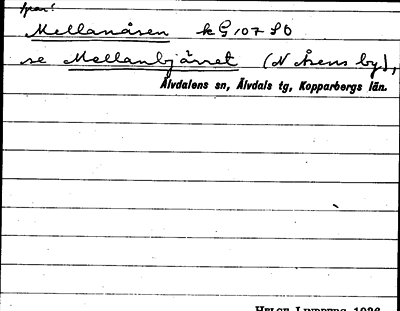 Mellanåsen k G 107 SO
se Mellanbjärret (N Åsens by),
Älvdalens sn, Älvdals tg, Kopparbergs län.
HELGE LINDBERG 1936